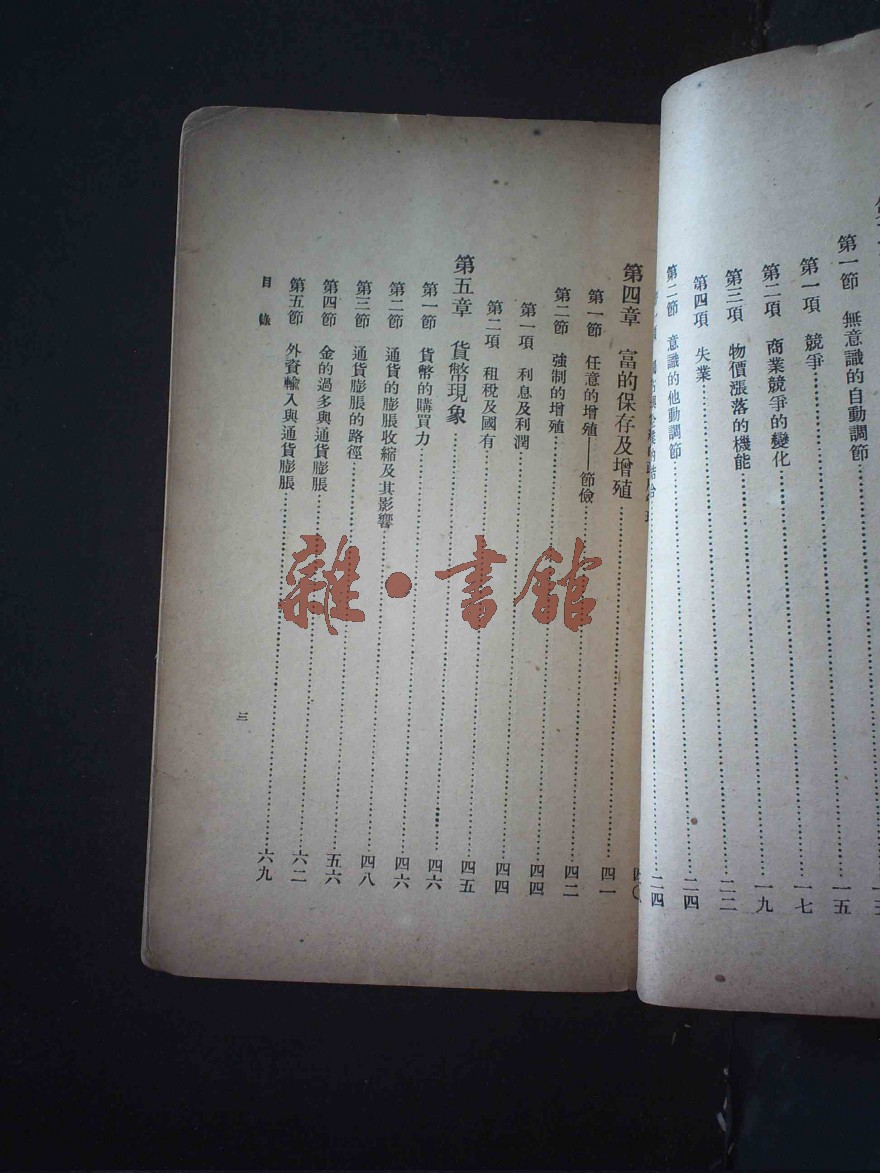 第一節　無意識的自動調節……一五
第一項　競爭……一七
第二項　商業競爭的變化……一九
第三項　物價漲落的機能……二二
第四項　失業……二四
第二節　意識的他動調節……二四
第四章　富的保存及增殖……四〇
第一節　任意的增殖——節儉……四一
第二節　強制的增殖……四二
第一項　利息及利潤……四四
第二項　租稅及國有……四四
第五章　貨幣現象……四五
第一節　貨幣的購買力……四六
第二節　通貨的膨脹收縮及其影響……四六
第三節　通貨膨脹的路徑……四八
第四節　金的過多與通貨膨脹……五六
第五節　外資輸入與通貨膨脹……六二
六九
目錄
三
雜·書館